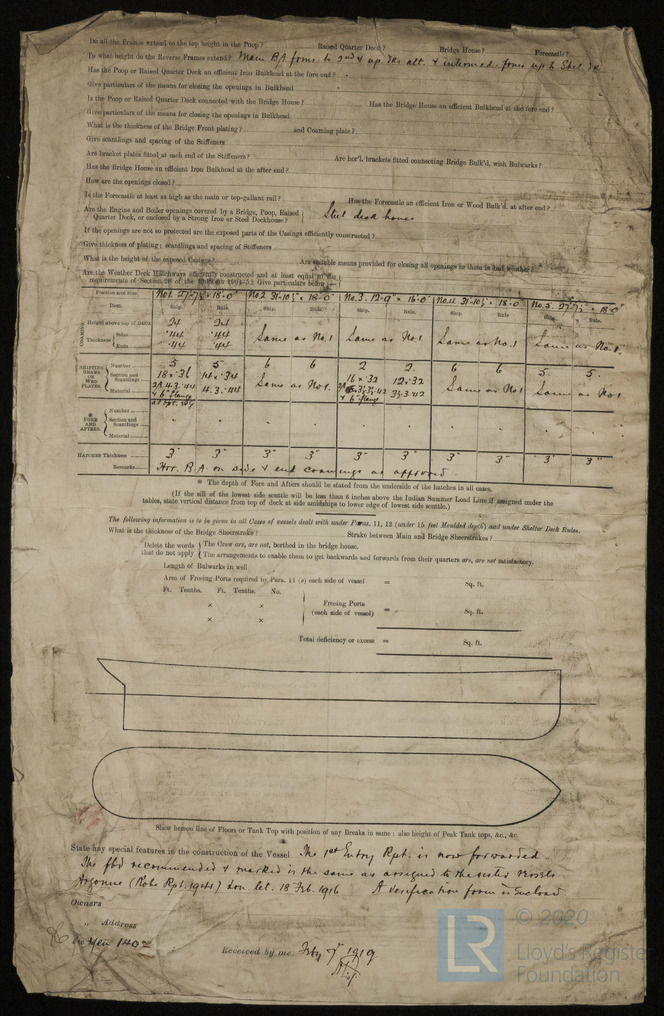 Do all the Frames extend to the top height in the Poop? Raised Quarter Deck? Bridge House? Forecastle?
To what height do the Reverse Frames extend? Main BA frms to 2nd & up. dks alt. & intermed. frms up to Shel. dk
Has the Poop or Raised Quarter Deck an efficient Iron Bulkhead at the fore end?
Give particulars of the means for closing the openings in Bulkhead
Is the Poop or Raised Quarter Deck connected with the Bridge House? Has the Bridge House an efficient Bulkhead at the fore end?
Give particulars of the means for closing the openings in Bulkhead
What is the thickness of the Bridge Front plating? and Coaming plate?
Give scantlings and spacing of the Stiffeners
Are bracket plates fitted at each end of the Stiffeners? Are hor'l. brackets fitted connecting Bridge Bulk'd, with Bulwarks?
Has the Bridge House an efficient Iron Bulkhead at the after end?
How are the openings closed?
Is the Forecastle at least as high as the main or top-gallant rail? Has the Forecastle an efficient Iron or Wood Bulk'd. at after end?
Are the Engine and Boiler openings covered by a Bridge, Poop, Raised Quarter Deck, or enclosed by a Strong Iron or Steel Deckhouse? Steel deck house
If the openings are not so protected are the exposed parts of the Casings efficiently constructed?
Give thickness of plating; scantlings and spacing of Stiffeners
What is the height of the exposed Casings? Are suitable means provided for closing all openings in them in bad weather?
Are the Weather Deck Hatchways efficiently constructed and at least equal to the
requirements of Section 28 of the Rules Give particulars below:
Position and Size. No 1. 27-7½ × 18-0" No 2. 31-10½ × 18-0" No. 3. 12-9" × 16-0" No. 4. 31-10½ × 18-0 No. 5. 27-7½" × 18-0"
Item. Ship. Rule. Ship. Rule. Ship. Rule. Ship. Rule. Ship. Rule.
COAMING Height above top of DECK 24 24
Thickness Sides .44 .44 Same as No. 1 Same as No. 1 Same as No. 1 Same as No. 1.
Ends .44 .44
SHIFTING BEAMS OR WEB PLATES. Number 5 5 6 6 2 2 6 6 5. 5.
Section and Scantlings 18 × .36 Same as No 1. 16 × .32 12 × .32 Same as No 1 Same as No 1
Material & 6" flange 4.3.44 & 6" flange
* FORE AND AFTERS. Number
Section and Scantlings
Material
HATCHES Thickness 3" 3" 3" 3" 3" 3" 3" 3" 3" 3"
Remarks Hor. B.A on sides & end coamings as approved
* The depth of Fore and Afters should be stated from the underside of the hatches in all cases.
(If the sill of the lowest side scuttle will be less than 6 inches above the Indian Summer Load Line if assigned under the
tables, state vertical distance from top of deck at side amidships to lower edge of lowest side scuttle.)
The following information is to be given in all Cases of vessels dealt with under Paras. 11, 12 (under 15 feet Moulded depth) and under Shelter Deck Rules.
What is the thickness of the Bridge Sheerstrake? Strake between Main and Bridge Sheerstrakes?
Delete the words that do not apply { The Crew are, are not, berthed in the bridge house.
The arrangements to enable them to get backwards and forwards from their quarters are, are not satisfactory.
Length of Bulwarks in well
Area of Freeing Ports required by Para. 11 (e) each side of vessel = Sq. ft.
Ft. Tenths. Ft. Tenths. No.
× × Freeing Ports (each side of vessel) = Sq. ft.
× ×
Total deficiency or excess = Sq. ft.
Show hereon line of Floors or Tank Top with position of any Breaks in same: also height of Peak Tank tops, &c., &c.
State any special features in the construction of the Vessel. The 1st Entry Rpt. is now forwarded.
The fbd recommended & marked is the same as assigned to the sister vessels
Argonne (Kobe Rpt. 1941) Lon. let. 18 Feb. 1916 A verification form is enclosed
Owners
" Address
Fee Yen 140=
Received by me. Feby 7th 1919
© 2020
LR Lloyd's Register
Foundation